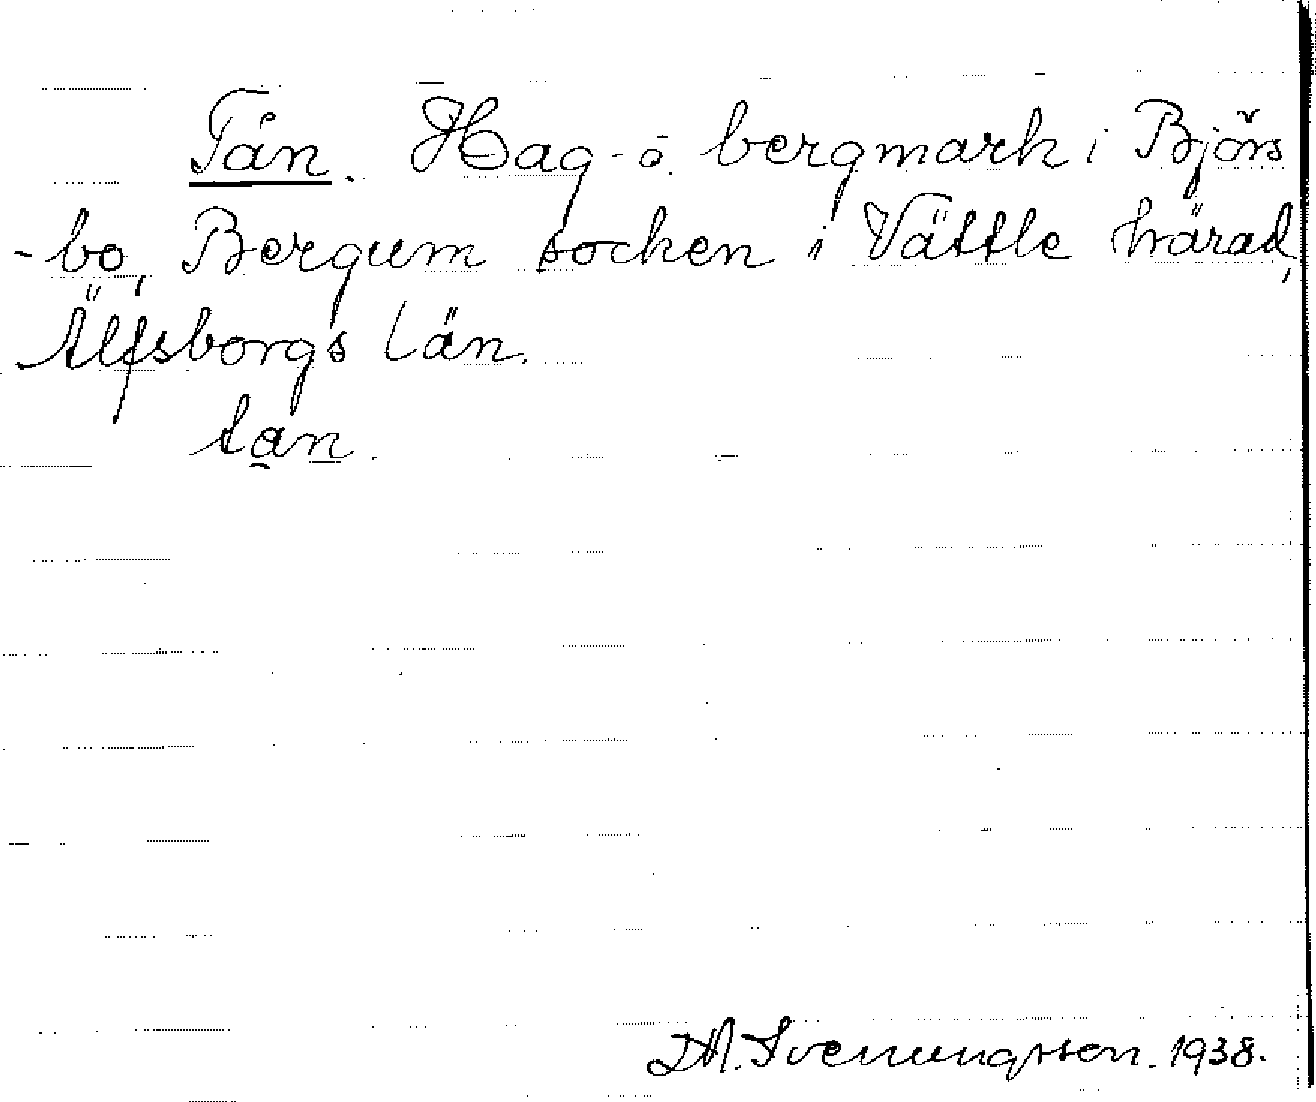 Tån. Hag- o. bergmark i Björs
-bo, Bergum socken i Vättle härad,
Älfsborgs län.
tan.
M. Svenungsson. 1938.